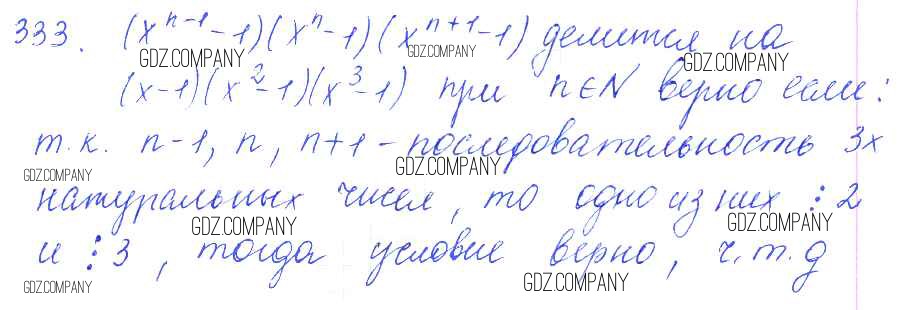 333. (x^{n-1}-1)(x^n-1)(x^{n+1}-1) делится на
(x-1)(x^2-1)(x^3-1) при n∈N верно если:
т.к. n-1, n, n+1 - последовательность 3х
натуральных чисел, то одно из них ⋮ 2
и ⋮ 3, тогда условие верно, ч.т.д
GDZ.COMPANY
GDZ.COMPANY
GDZ.COMPANY
GDZ.COMPANY
GDZ.COMPANY
GDZ.COMPANY
GDZ.COMPANY
GDZ.COMPANY
GDZ.COMPANY